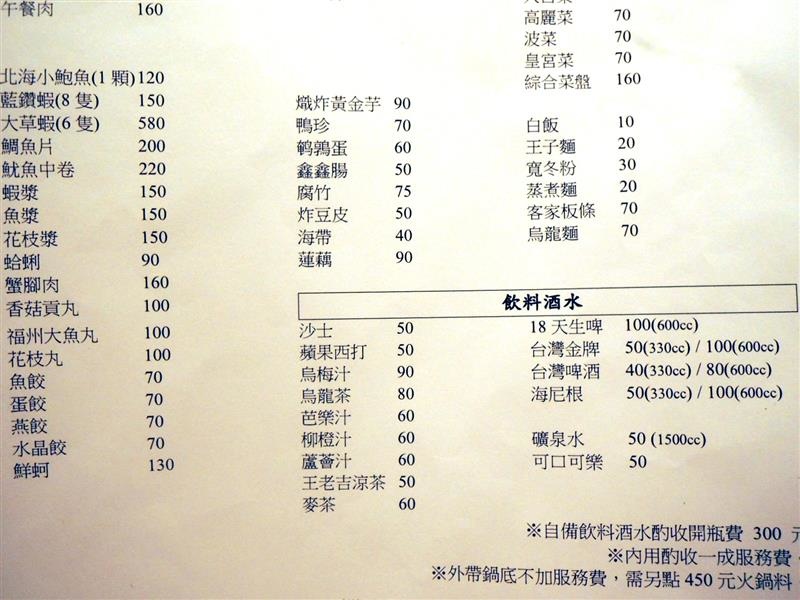 午餐肉 160
北海小鮑魚(1 顆) 120
藍鑽蝦(8 隻) 150
大草蝦(6 隻) 580
鯛魚片 200
魷魚中卷 220
蝦漿 150
魚漿 150
花枝漿 150
蛤蜊 90
蟹腳肉 160
香菇貢丸 100
福州大魚丸 100
花枝丸 100
魚餃 70
蛋餃 70
燕餃 70
水晶餃 70
鮮蚵 130
熾炸黃金芋 90
鴨珍 70
鹌鶉蛋 60
鑫鑫腸 50
腐竹 75
炸豆皮 50
海帶 40
蓮藕 90
高麗菜 70
波菜 70
皇宮菜 70
綜合菜盤 160
白飯 10
王子麵 20
寬冬粉 30
蒸煮麵 20
客家板條 70
烏龍麵 70
飲料酒水
沙士 50
蘋果西打 50
烏梅汁 90
烏龍茶 80
芭樂汁 60
柳橙汁 60
蘆薈汁 60
王老吉涼茶 50
麥茶 60
18 天生啤 100(600cc)
台灣金牌 50(330cc) / 100(600cc)
台灣啤酒 40(330cc) / 80(600cc)
海尼根 50(330cc) / 100(600cc)
礦泉水 50 (1500cc)
可口可樂 50
※自備飲料酒水酌收開瓶費 300 元
※內用酌收一成服務費
※外帶鍋底不加服務費，需另點 450 元火鍋料